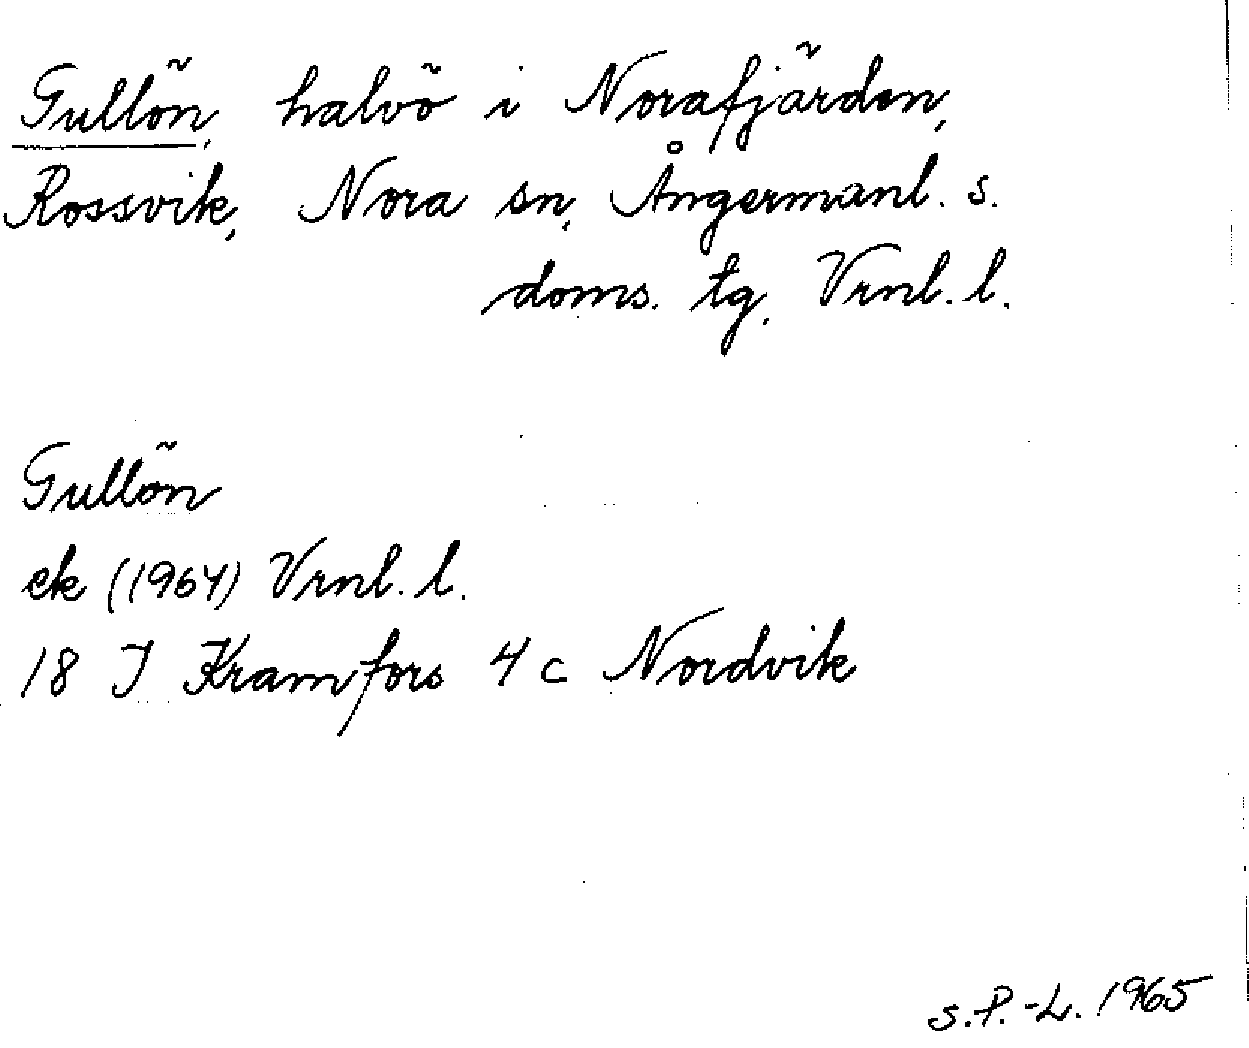 Gullön, halvö i Norafjärden,
Rossvik, Nora sn, Ångermanl. s.
doms. tg, Vrnl. l.
Gullön
ek (1964) Vrnl. l.
18 J Kramfors 4 c Nordvik
S.P.-L. 1965